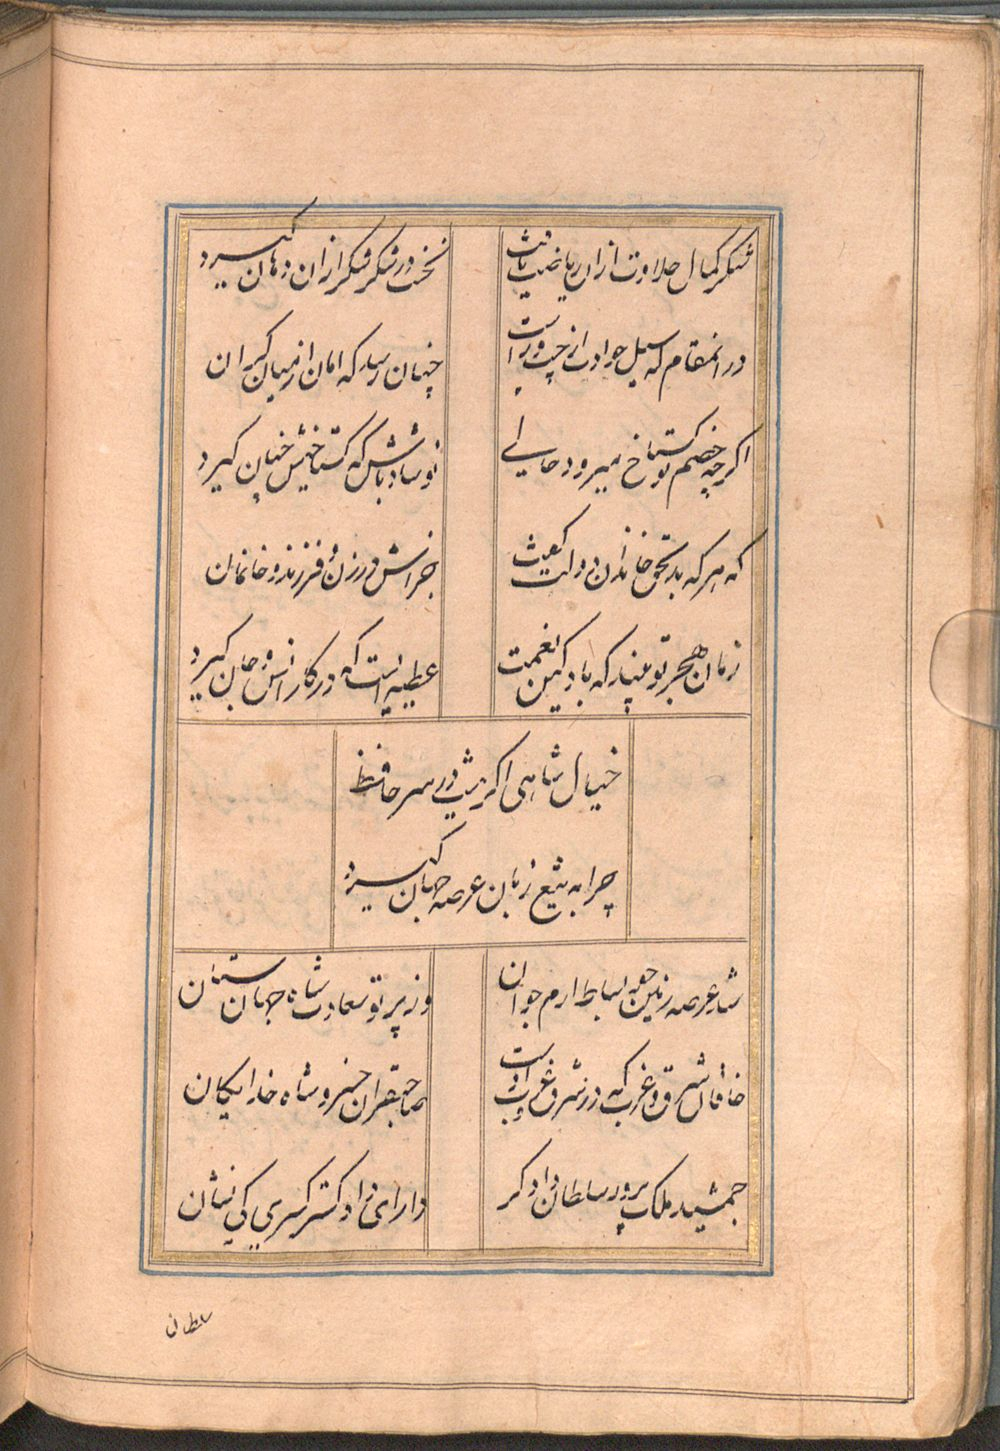 شکر کمال حلاوت از ان ریاضت یافت نخست در شکر شکر از ان دهان گیرد
در انمقام که سیل حوادث از چپ و راست چنان رسد که امان از میان کران
اگرچه خصم تو گستاخ میرود حالی تو شاد باش که گستاخیش چنان گیرد
که هر که بد بحق خاندان دولت گفت جزاش در زن و فرزند و خانمان
زمان هجر تو مپندار که باد کین نعمت عطیه ایست که در کار انس و جان گیرد
خیال شاهی اگر نیست در سر حافظ
چرا به تیغ زبان عرصه جهان گیرد
شد عرصه زمین چو بساط ارم جوان وز پرتو سعادت شاه جهان ستان
خاقان شرق و غرب که در شرق و غرب اوست صاحبقران خسرو شاه خدایکان
جمشید ملک پرور سلطان دادگر دارای دادگستر کسری کی نشان
سلطانی